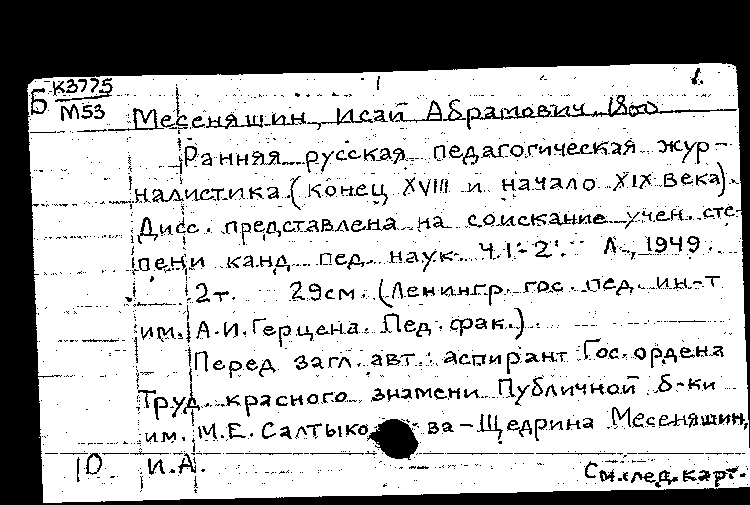 1.
Б К3775
М53
Месеняшин, Исай Абрамович, 1800
Ранняя русская педагогическая жур-
налистика (конец XVIII и начало XIX века).
Дисс. представлена на соискание учен. сте-
пени канд пед. наук. Ч.1-2. Л., 1949.
2т. 29см. (Ленингр. гос. пед. ин-т
им. А.И.Герцена. Пед. фак.)
Перед загл. авт.: аспирант Гос. ордена
Труд. красного знамени Публичной б-ки
им. М.Е. Салтыкова-Щедрина Месеняшин,
10. И.А.
См.след.карт.